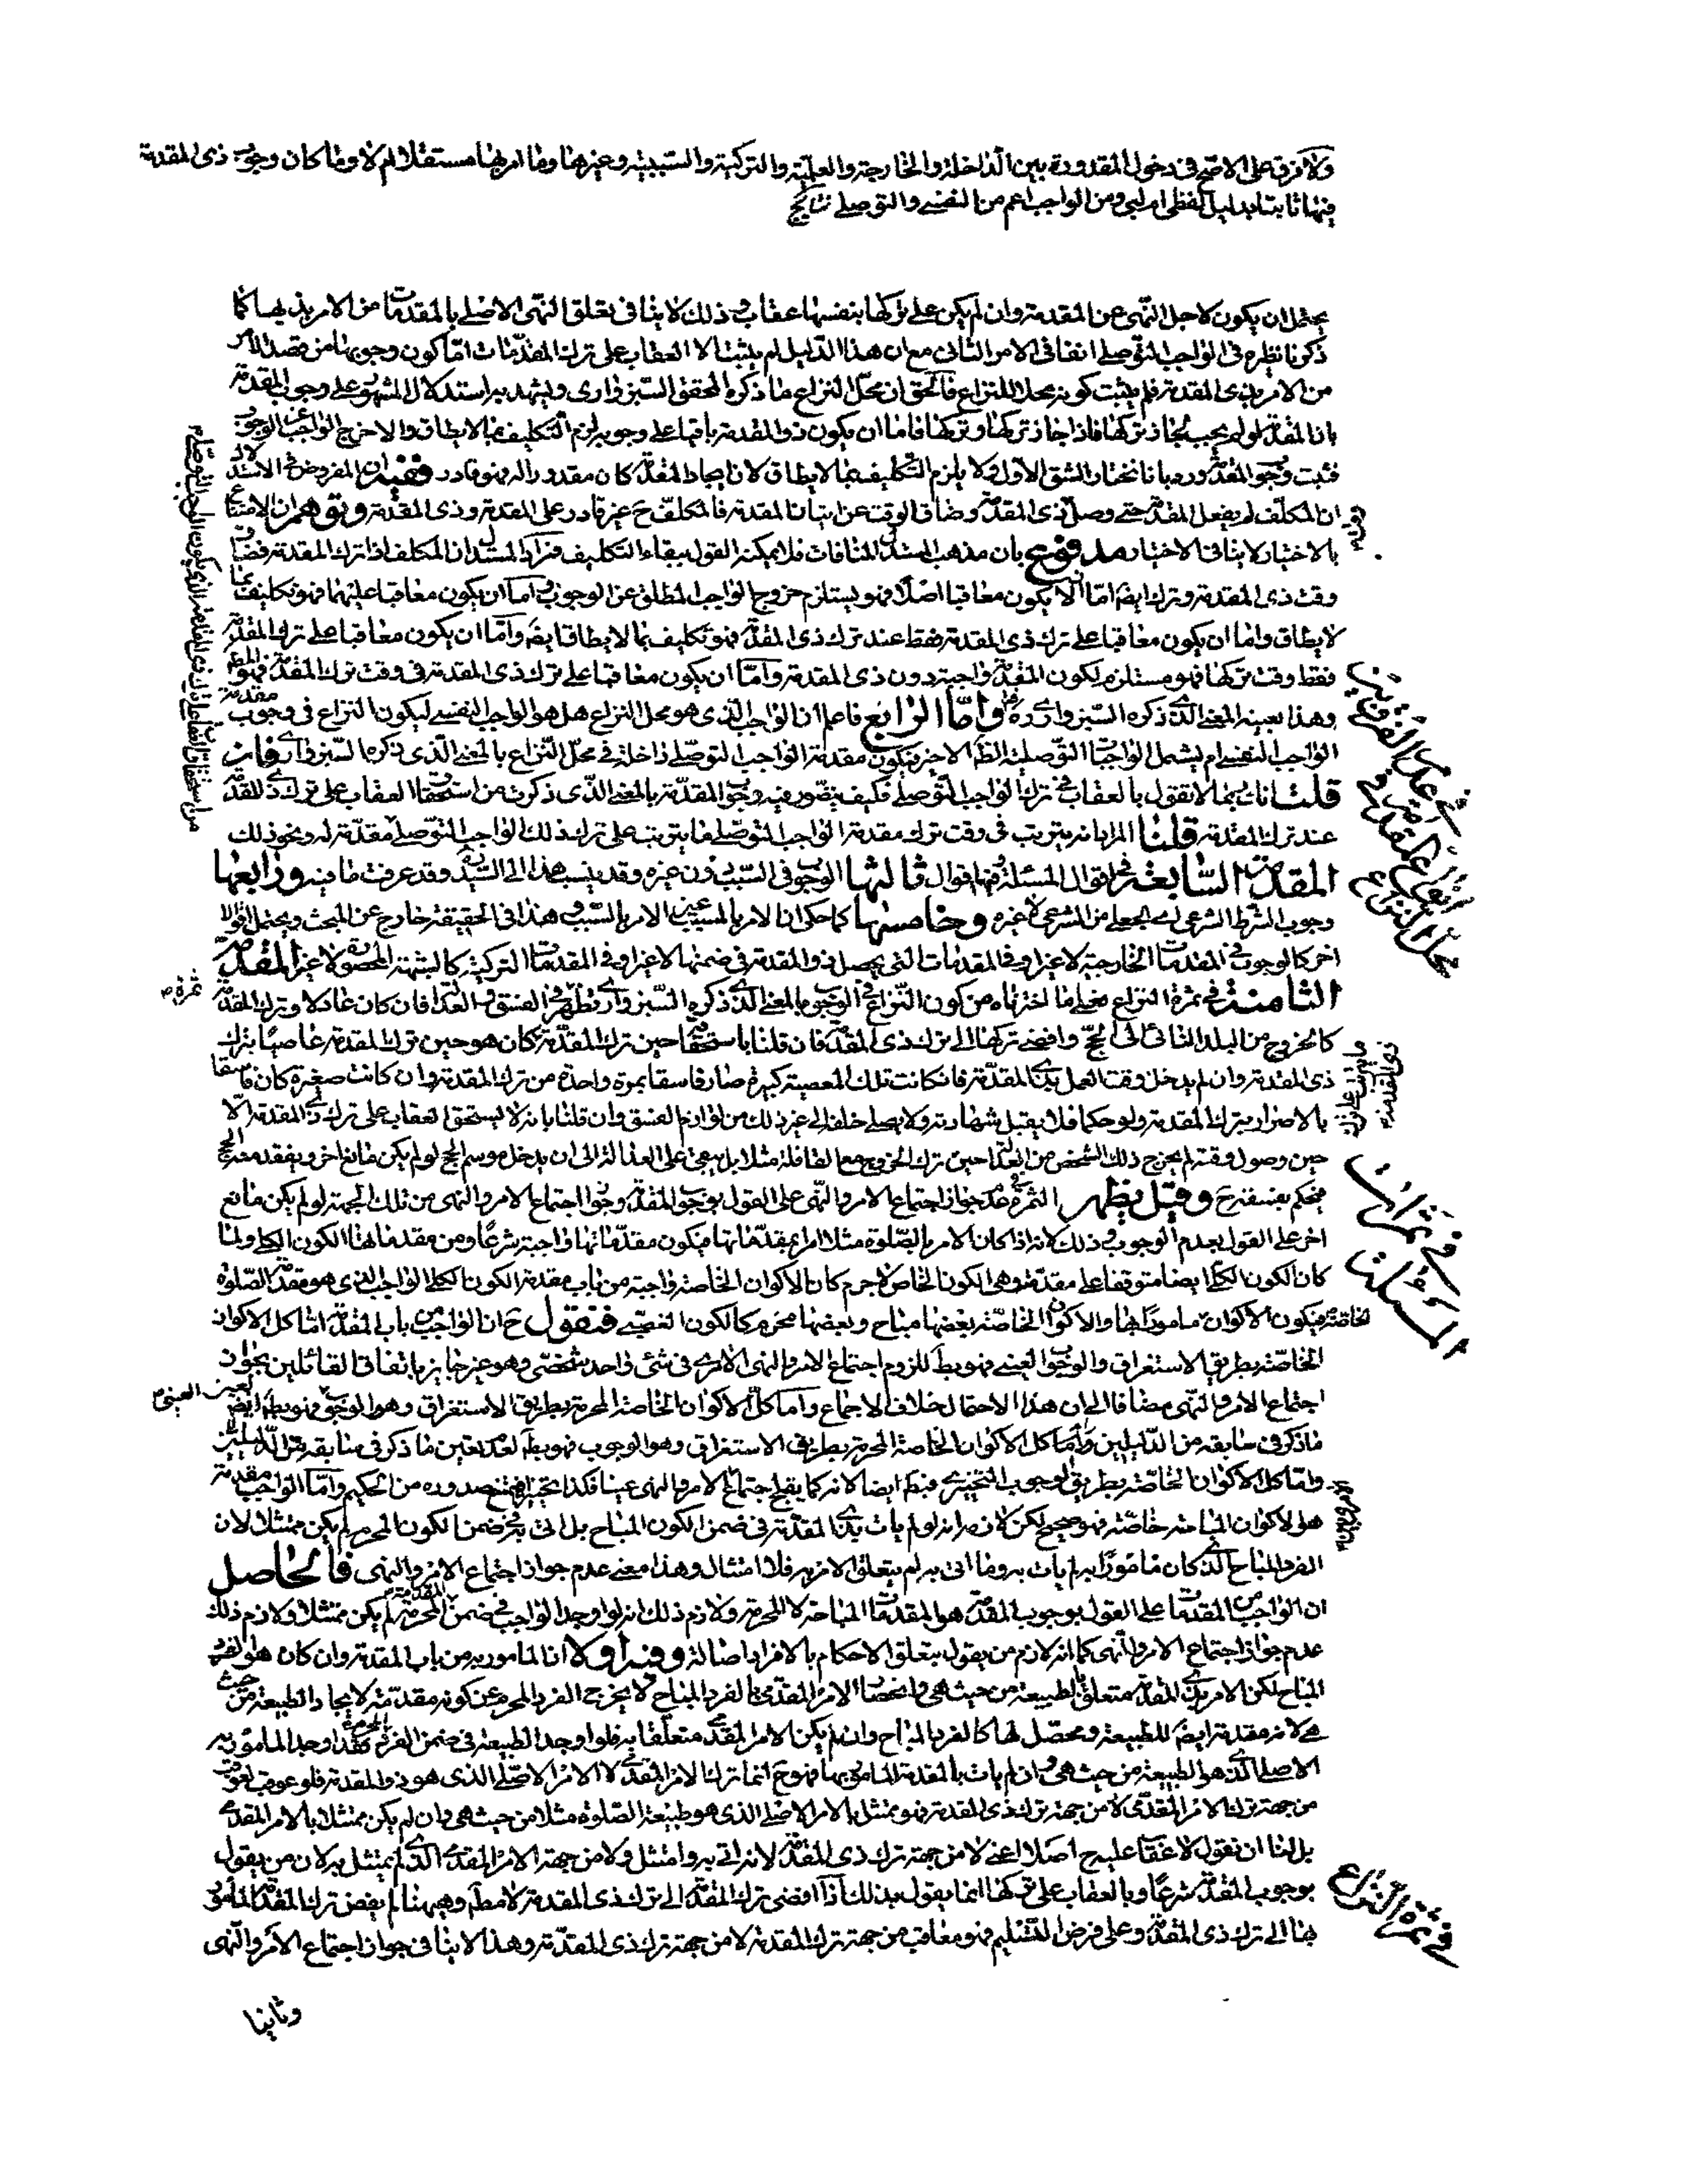 ولا فرق على الاصح في دخول المقدورة بين الداخلة والخارجة والعلية والتركية والسببية وغيرها وما امر بها مستقلا ام لا وما كان وجوب ذي المقدمة
فيها ثابتا بدليل لفظي ام لبي ومن الواجب اعم من النفسي والتوصلي نتايج
يحتمل ان يكون لاجل النهي عن المقدمة وان لم يكن على تركها بنفسها عقاب وذلك لا ينافي تعلق النهي الاصلي بالمقدمات من الامر بذيها كما
ذكرنا نظيره في الواجب التوصلي انفا في الامر الثاني مع ان هذا الدليل لم يثبت الا العقاب على ترك المقدمات اما كون وجوبها من قصد الامر
من الامر بذي المقدمة فلم يثبت كونه محلا للنزاع فالحق ان محل النزاع ما ذكره المحقق السبزواري ويشهد به استدلال المشهور على وجوب المقدمة
بان المقدمة لو لم يجب لجاز تركها فاذا جاز تركها وتركها فاما ان يكون ذو المقدمة باقيا على وجوبه لزم التكليف بما لا يطاق والا خرج الواجب عن الوجوب
فثبت وجوب المقدمة ورد بانا نختار الشق الاول ولا يلزم التكليف بما لا يطاق لان ايجاد المقدمة كان مقدورا له وهو قادر ففيه ان المفروض في الاستدلال
ان المكلف لم يفعل المقدمة حتى وصل ذي المقدمة وضاق الوقت عن اتيان المقدمة فالمكلف ح غير قادر على المقدمة وذي المقدمة وتوهم ان الامتناع
بالاختيار لا ينافي الاختيار مدفوع بان مذهب المستدل المنافات فلا يمكنه القول ببقاء التكليف فمراد المستدل ان المكلف اذا ترك المقدمة فضاق
وقت ذي المقدمة وترك ايضا اما ان لا يكون معاقبا اصلا فهو يستلزم خروج الواجب المطلق عن الوجوب واما ان يكون معاقبا عليهما فهو تكليف بما
لا يطاق واما ان يكون معاقبا على ترك ذي المقدمة فقط عند ترك ذي المقدمة فهو تكليف بما لا يطاق ايضا واما ان يكون معاقبا على ترك المقدمة
فقط وقت تركها فهو مستلزم لكون المقدمة واجبة دون ذي المقدمة واما ان يكون معاقبا على ترك ذي المقدمة في وقت ترك المقدمة فهو المط
وهذا بعينه المعنى الذي ذكره السبزواري ره واما الرابع فاعلم ان الواجب الذي هو محل النزاع هل هو الواجب النفسي ليكون النزاع في وجوب مقدمة
الواجب النفسي ام يشمل الواجبات التوصلية الظ الاخير فيكون مقدمة الواجب التوصلي داخلة في محل النزاع بالمعنى الذي ذكره السبزواري فان
قلت انك بما لا تقول بالعقاب في ترك الواجب التوصلي فكيف يتصور فيه وجوب المقدمة بالمعنى الذي ذكرت من استحقاق العقاب على ترك ذي المقدمة
عند ترك المقدمة قلنا المراد انه يترتب في وقت ترك مقدمة الواجب التوصلي ما يترتب على ترك ذلك الواجب التوصلي مقدمة له ونحو ذلك
المقدمة السابعة في اقوال المسئلة فيها اقوال ثالثها الوجوب في السبب دون غيره وقد ينسب هذا الى السيد ره وقد عرفت ما فيه ورابعها
وجوب الشرط الشرعي اي الجعلي من الشرع لا غيره وخامسها كما حكي ان الامر بالمسبب عين الامر بالسبب وهذا في الحقيقة خارج عن المبحث ويحتمل اقوالا
اخر كالوجوب في المقدمات الخارجية لا غير او في المقدمات التي يحصل ذو المقدمة في ضمنها لا غير او في المقدمات التركية كالشبهة المحصورة لا غير المقدمة
الثامنة في ثمرة النزاع فعلى ما اخترناه من كون النزاع في الوجوب بالمعنى الذي ذكره السبزواري تظهر في الفسق والعدالة فان كان عادلا وترك المقدمة
كالخروج من البلد النائي الى الحج وافضى تركها الى ترك ذي المقدمة فان قلنا باستحقاقه حين ترك المقدمة كان هو حين ترك المقدمة عاصيا بترك
ذي المقدمة وان لم يدخل وقت العمل بذي المقدمة فان كانت تلك المعصية كبيرة صار فاسقا بمرة واحدة من ترك المقدمة وان كانت صغيرة كان فاسقا
بالاصرار بترك المقدمة ولو حكما فلا يقبل شهادته ولا يصلى خلفه الى غير ذلك من لوازم الفسق وان قلنا بانه لا يستحق العقاب على ترك ذي المقدمة الا
حين وصول وقته لم يخرج ذلك الشخص من العدالة حين ترك الخروج مع القافلة مثلا بل بقي على العدالة الى ان يدخل موسم الحج لو لم يكن مانع اخر ويفقد معه الحج
فيحكم بفسقه ح وقيل يظهر الثمرة في عدم جواز اجتماع الامر والنهي على القول بوجوب المقدمة وجواز اجتماع الامر والنهي من تلك الجهة لو لم يكن مانع
اخر على القول بعدم الوجوب وذلك لانه اذا كان الامر بالصلوة مثلا امرا بمقدماتها فيكون مقدماتها واجبة شرعا ومن مقدماتها الكون الكلي ولما
كان الكون الكلي ايضا متوقفا على مقدمة وهي الكون الخاص لا جرم كان الاكوان الخاصة واجبة من باب مقدمة الكون الكلي الواجب الذي هو مقدمة الصلوة
فيكون الاكوان الخاصة مامورا بها والاكوان الخاصة بعضها مباح وبعضها محرم كالكون الغصبي فنقول ح ان الواجب من باب المقدمة اما كل الاكوان
الخاصة بطريق الاستغراق والوجوب العيني فهو بط للزوم اجتماع الامر والنهي الامري في شئ واحد شخصي وهو غير جايز باتفاق القائلين بجواز
اجتماع الامر والنهي مضافا الى ان هذا الاحتمال خلاف الاجماع واما كل الاكوان الخاصة المحرمة بطريق الاستغراق وهو الوجوب العيني فهو بط ايضا لعين
ما ذكر في سابقه من الدليلين واما كل الاكوان الخاصة المحرمة بطريق الاستغراق وهو الوجوب فهو بط لعين ما ذكر في سابقه من الدليلين
واما كل الاكوان الخاصة بطريق الوجوب التخييري فبط ايضا لانه كما يقبح اجتماع الامر والنهي عينا فكذا تخييرا فيمتنع صدوره من الحكيم واما الواجب مقدمة
هو الاكوان المباحة خاصة فهو صحيح لكن لازمه انه لو لم يات بذي المقدمة في ضمن الكون المباح بل اتى به في ضمن الكون المحرم لم يكن ممتثلا لان
الفرد المباح الذي كان مامورا به لم يات به وما اتى به لم يتعلق الامر به فلا امتثال وهذا معنى عدم جواز اجتماع الامر والنهي فالحاصل
ان الواجب من المقدمات على القول بوجوب المقدمة هو المقدمات المباحة لا المحرمة ولازم ذلك انه لو اوجد الواجب في ضمن المقدمة المحرمة لم يكن ممتثلا ولازم ذلك
عدم جواز اجتماع الامر والنهي كما انه لازم من يقول بتعلق الاحكام بالافراد اصالة وفيه اولا ان المامور به من باب المقدمة وان كان هو الفرد
المباح لكن الامر بذي المقدمة متعلق بالطبيعة من حيث هي وانحصار الامر المقدمي بالفرد المباح لا يخرج الفرد المحرم عن كونه مقدمة لايجاد الطبيعة من حيث
هي لانه مقدمة ايضا للطبيعة ومحصل لها كالفرد المباح وان لم يكن الامر المقدمي متعلقا به فلو اوجد الطبيعة في ضمن الفرد المحرم فقد اوجد المامور به
الاصلي الذي هو الطبيعة من حيث هي وان لم يات بالمقدمة المامور بها فهو ح انما ترك الامر المقدمي لا الامر الاصلي الذي هو ذو المقدمة فلو عوقب لعوقب
من جهة ترك الامر المقدمي لا من جهة ترك ذي المقدمة فهو ممتثل بالامر الاصلي الذي هو طبيعة الصلوة مثلا من حيث هي وان لم يكن ممتثلا بالامر المقدمي
بل لنا ان نقول لا عقاب عليه ح اصلا اعني لا من جهة ترك ذي المقدمة لانه اتى به وامتثل ولا من جهة الامر المقدمي الذي لم يمتثل به لان من يقول
بوجوب المقدمة شرعا وبالعقاب على تركها انما يقول بذلك اذا افضى ترك المقدمة الى ترك ذي المقدمة لا مط وهيهنا لم يفض ترك المقدمة المامور
بها الى ترك ذي المقدمة وعلى فرض التسليم فهو معاقب من جهة ترك المقدمة لا من جهة ترك ذي المقدمة وهذا لا ينافي جواز اجتماع الامر والنهي
وثانيا
محل النزاع
في ثمرات المسئلة
في ثمرة النزاع